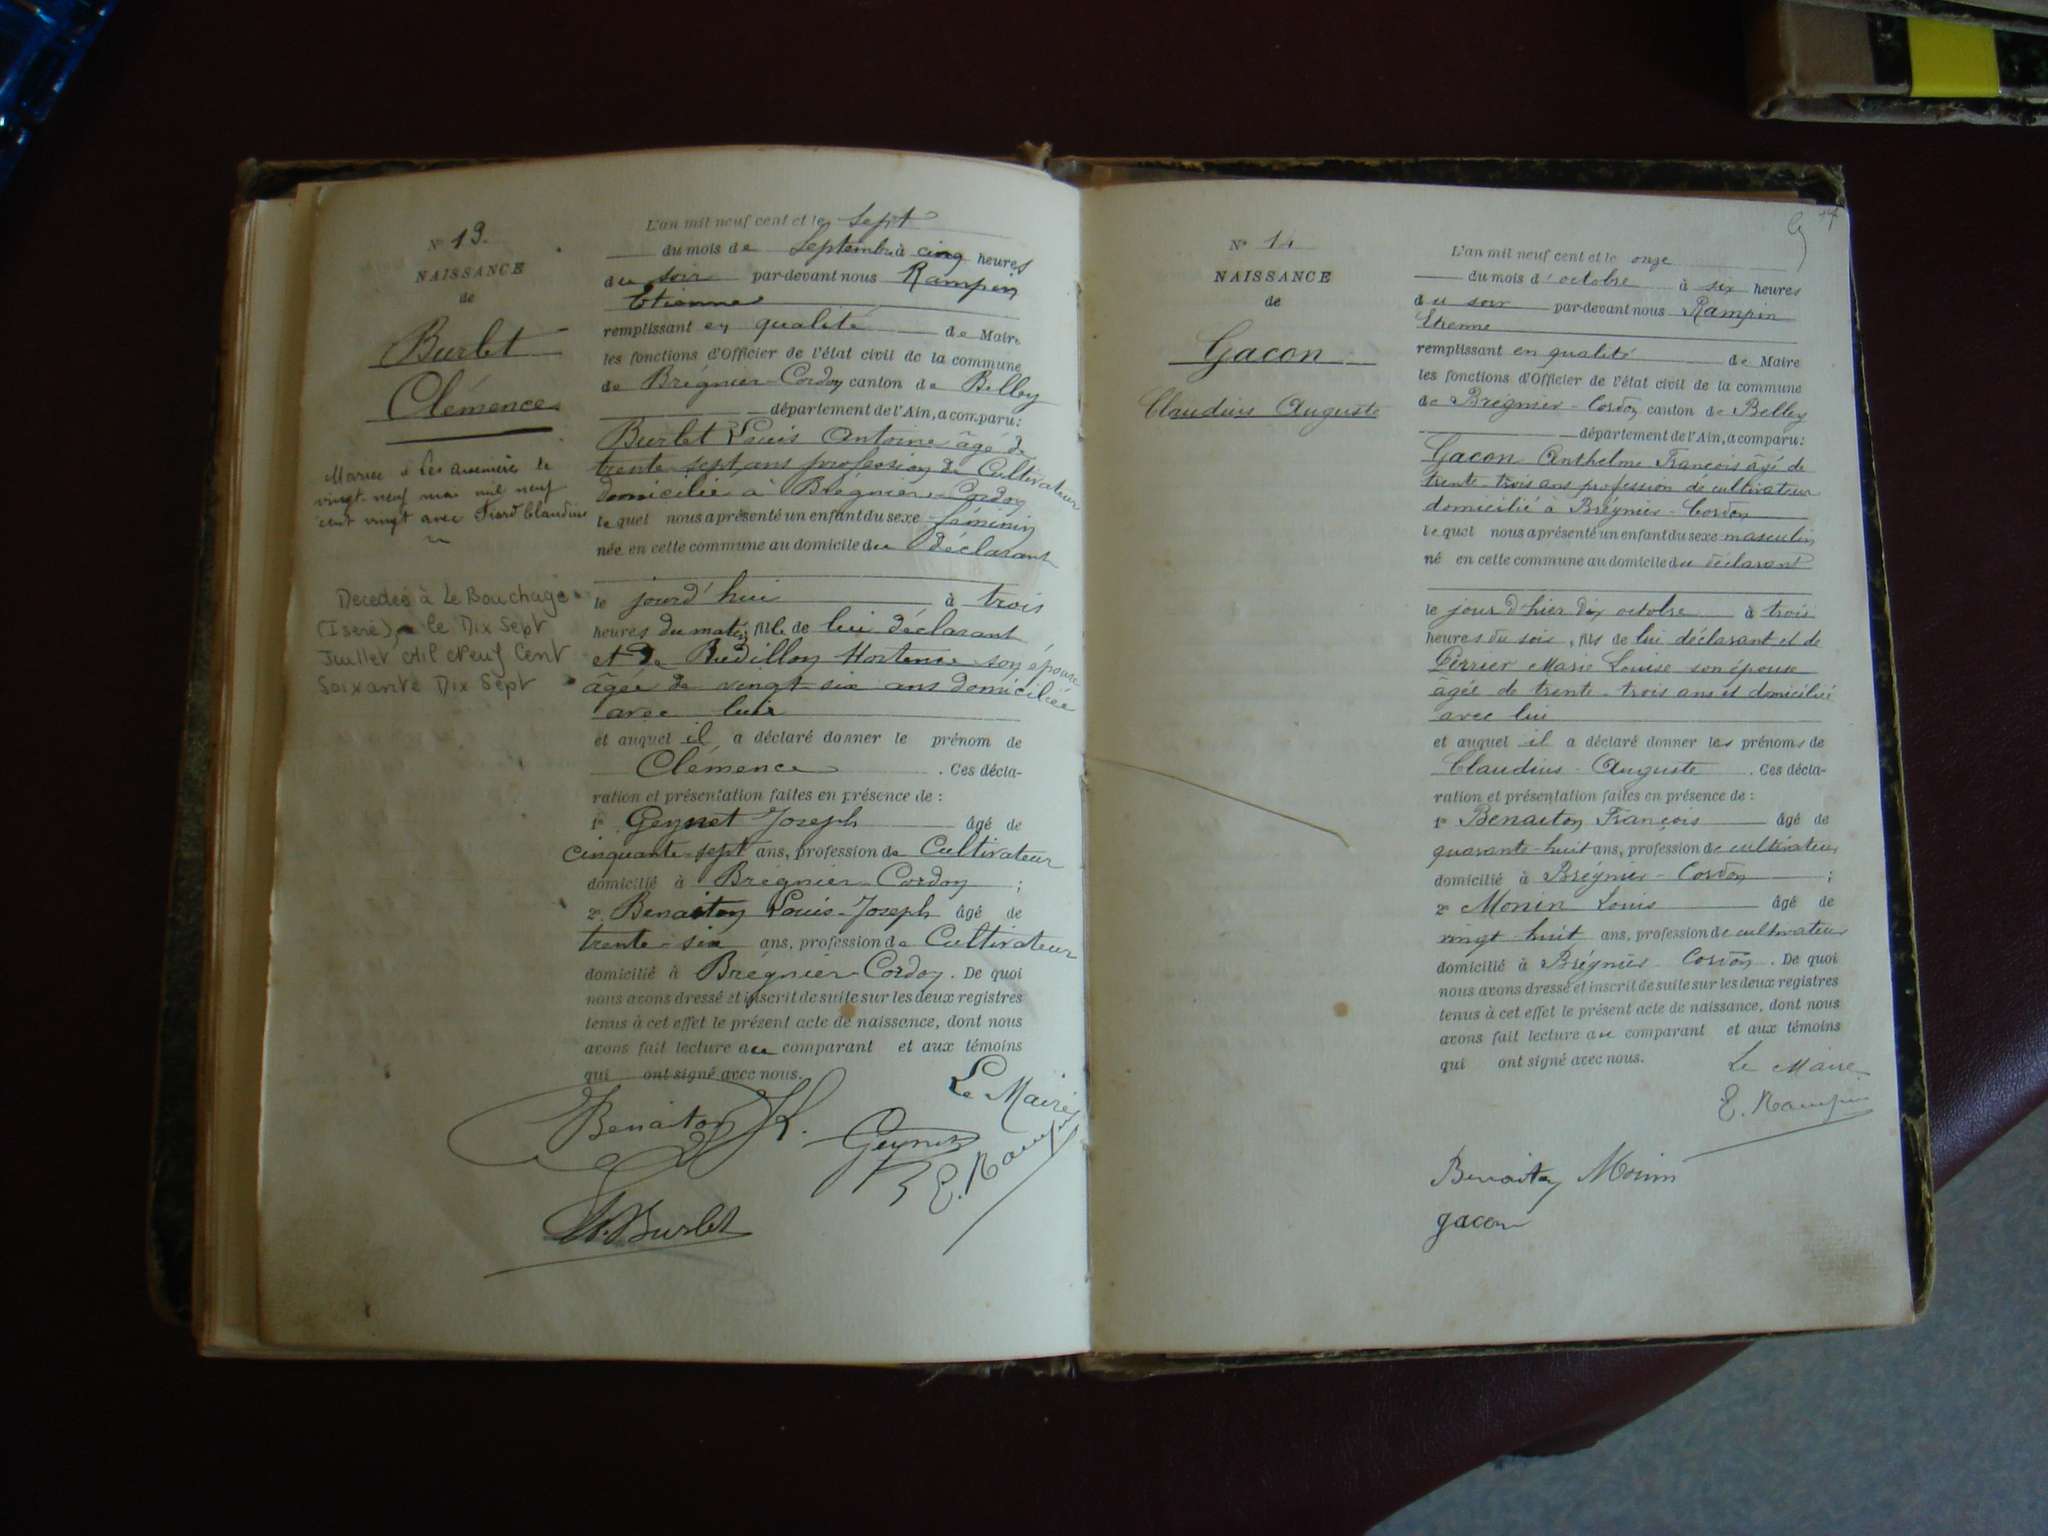 Nº 13.
NAISSANCE
de
Burlet
Clémence
Mariée à Les Avenières le
vingt neuf mai mil neuf
cent vingt avec Claudius
Decedeé à Le Bouchage
(Isere), le Dix Sept
Juillet Mil Neuf Cent
Soixante Dix Sept
L'an mil neuf cent et le sept
du mois de Septembre à cinq heures
du soir par-devant nous Rampin
Etienne
remplissant en qualité de Maire
les fonctions d'Officier de l'état civil de la commune
de Brégnier-Cordon canton de Belley
département de l'Ain, a comparu:
Burlet Louis Antoine âgé de
trente sept ans profession de Cultivateur
domicilié à Brégnier-Cordon
lequel nous a présenté un enfant du sexe féminin
née en cette commune au domicile du déclarant
le jourd'hui à trois
heures du matin, fille de lui déclarant
et de Budillon Hortense son épouse
âgée de vingt-six ans domiciliée
avec lui
et auquel il a déclaré donner le prénom de
Clémence. Ces décla-
ration et présentation faites en présence de :
1º Geynet Joseph âgé de
cinquante-sept ans, profession de Cultivateur
domicilié à Brégnier-Cordon ;
2º Benaiton Louis-Joseph âgé de
trente-six ans, profession de Cultivateur
domicilié à Brégnier-Cordon. De quoi
nous avons dressé et inscrit de suite sur les deux registres
tenus à cet effet le présent acte de naissance, dont nous
avons fait lecture au comparant et aux témoins
qui ont signé avec nous.
Le Maire
Benaiton
Geynet
E. Rampin
Burlet
Nº 1
NAISSANCE
de
Gacon
Claudius Auguste
L'an mil neuf cent et le onze
du mois d'octobre à six heures
du soir par-devant nous Rampin
Etienne
remplissant en qualité de Maire
les fonctions d'Officier de l'état civil de la commune
de Brégnier-Cordon canton de Belley
département de l'Ain, a comparu:
Gacon Anthelme François âgé de
trente-trois ans profession de cultivateur
domicilié à Brégnier-Cordon
lequel nous a présenté un enfant du sexe masculin
né en cette commune au domicile du déclarant
le jour d'hier dix octobre à trois
heures du soir, fils de lui déclarant et de
Perrier Marie Louise son épouse
âgée de trente-trois ans et domiciliée
avec lui
et auquel il a déclaré donner les prénoms de
Claudius-Auguste. Ces décla-
ration et présentation faites en présence de :
1º Benaiton François âgé de
quarante-huit ans, profession de cultivateur
domicilié à Brégnier-Cordon ;
2º Monin Louis âgé de
vingt-huit ans, profession de cultivateur
domicilié à Brégnier-Cordon. De quoi
nous avons dressé et inscrit de suite sur les deux registres
tenus à cet effet le présent acte de naissance, dont nous
avons fait lecture au comparant et aux témoins
qui ont signé avec nous.
Le Maire
E. Rampin
Benaiton Monin
gacon